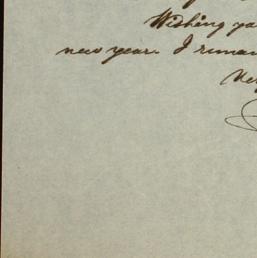 Wishing yo
new year. I remai
Ver